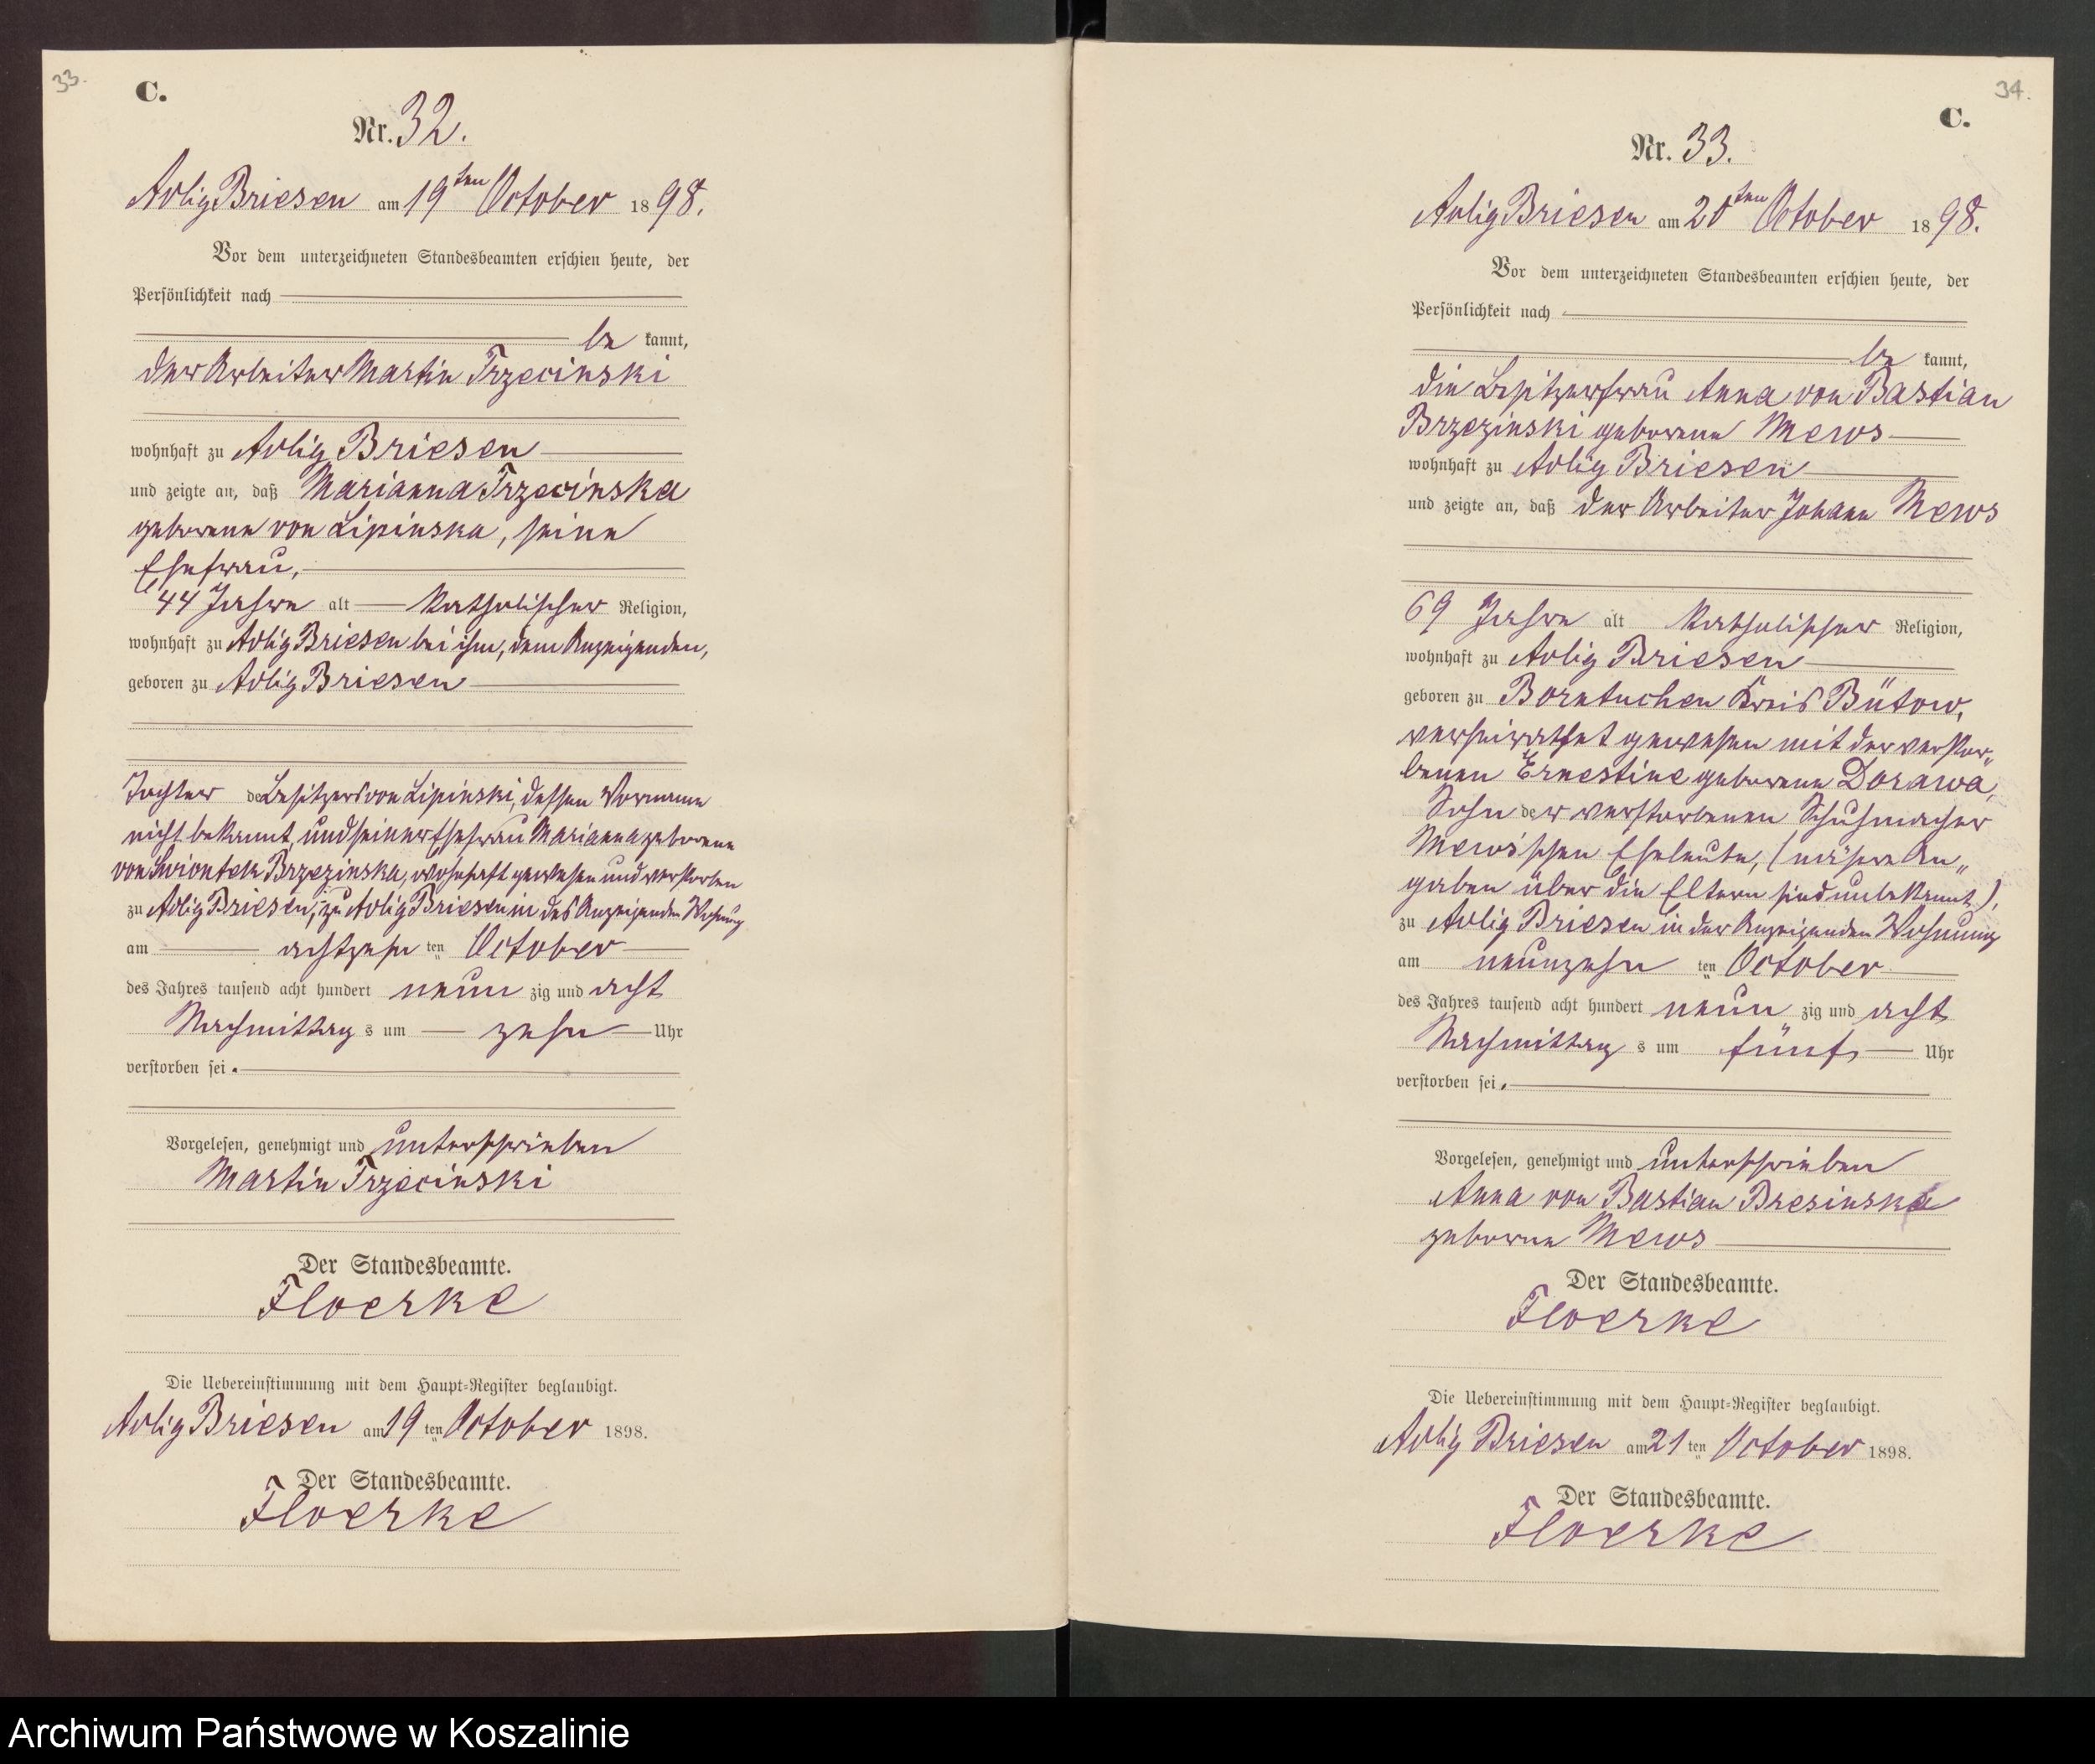 33.
C.
Nr. 32.
Adlig Briesen am 19ten October 1898.
Vor dem unterzeichneten Standesbeamten erschien heute, der
Persönlichkeit nach
be kannt,
der Arbeiter Martin Trzecinski
wohnhaft zu Adlig Briesen
und zeigte an, daß Marianna Trzecinska
geborene von Lipinska, seine
Ehefrau,
44 Jahre alt katholischer Religion,
wohnhaft zu Adlig Briesen bei ihm, dem Anzeigenden,
geboren zu Adlig Briesen
Tochter des Besitzers von Lipinski, dessen Vorname
nicht bekannt, und seiner Ehefrau Marianna geborene
von Swiontek Brzezinska, wohnhaft gewesen und verstorben
zu Adlig Briesen; zu Adlig Briesen in des Anzeigenden Wohnung
am achtzehn ten October
des Jahres tausend acht hundert neun zig und acht
Nachmittag s um zehn Uhr
verstorben sei.
Vorgelesen, genehmigt und unterschrieben
Martin Trzecinski
Der Standesbeamte.
Floerke
Die Uebereinstimmung mit dem Haupt-Register beglaubigt.
Adlig Briesen am 19 ten October 1898.
Der Standesbeamte.
Floerke
34.
C.
Nr. 33.
Adlig Briesen am 20ten October 1898.
Vor dem unterzeichneten Standesbeamten erschien heute, der
Persönlichkeit nach
be kannt,
die Besitzerfrau Anna von Bastian
Brzezinski geborene Mews
wohnhaft zu Adlig Briesen
und zeigte an, daß der Arbeiter Johann Mews
69 Jahre alt katholischer Religion,
wohnhaft zu Adlig Briesen
geboren zu Borntuchen Kreis Bütow,
verheirathet gewesen mit der verstor„
benen Ernestine geborene Dorawa,
Sohn der verstorbenen Schuhmacher
Mews'schen Eheleute, (nähere An„
gaben über die Eltern sind unbekannt),
zu Adlig Briesen in der Anzeigenden Wohnung
am neunzehn ten October
des Jahres tausend acht hundert neun zig und acht
Nachmittag s um fünf Uhr
verstorben sei.
Vorgelesen, genehmigt und unterschrieben
Anna von Bastian Bresinska
geborene Mews
Der Standesbeamte.
Floerke
Die Uebereinstimmung mit dem Haupt-Register beglaubigt.
Adlig Briesen am 21 ten October 1898.
Der Standesbeamte.
Floerke
Archiwum Państwowe w Koszalinie